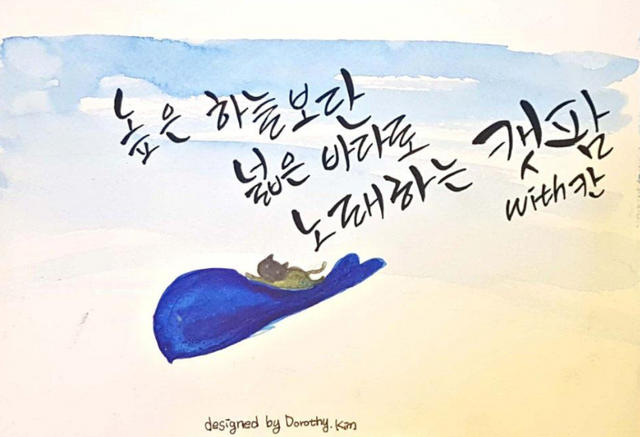 높은 하늘보단
넓은 바다로
노래하는 캣팜
with 칸
designed by Dorothy.Kan